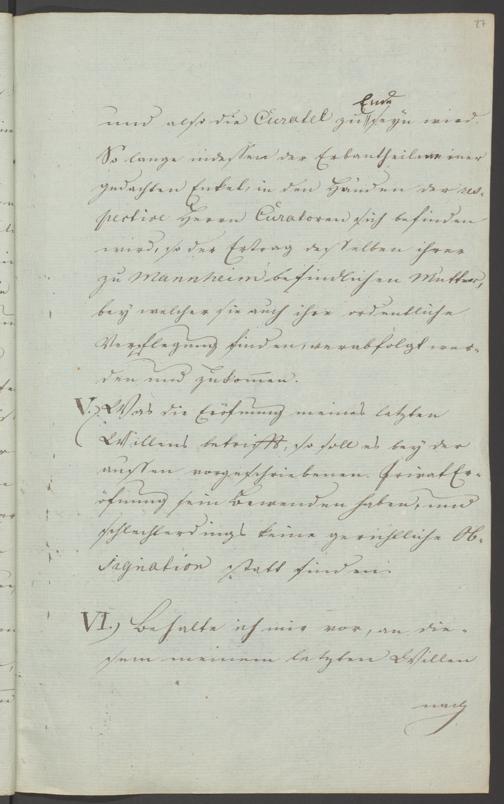 27
Ende
und also die Curatel zu seyn wird.
So lange indessen der Erbantheil meiner
gedachten Enkel, in den Händen der res-
pective Herrn Curatoren sich befinden
wird, so der Ertrag desselben ihrer
zu Mannheim befindlichen Mutter,
bey welcher sie auch ihre ordentliche
Verpflegung finden, verabfolgt wer-
den und zukommen.
V.) Was die Eröfnung meines letzten
Willens betrifft, so soll es bey der
aussen vorgeschriebenen privat Er-
öfnung sein Bewenden haben, und
schlechterdings keine gerichtliche Ob-
signation statt finden.
VI.) Behalte ich mir vor, an die-
sem meinem letzten Willen
nach